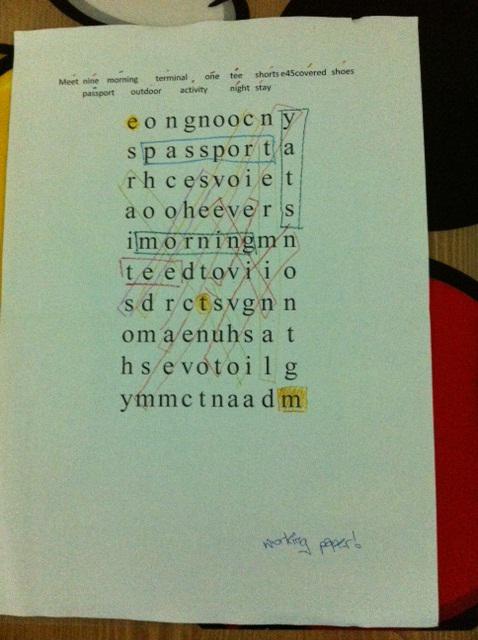 Meet nine morning terminal , one tee shorts e45covered shoes
passport outdoor activity night stay
e o n g n o o c n y
s p a s s p o r t a
r h c e s v o i e t
a o o h e e v e r s
i m o r n i n g m n
t e e d t o v i i o
s d r c t s v g n n
o m a e n u h s a t
h s e v o t o i l g
y m m c t n a a d m
working paper!